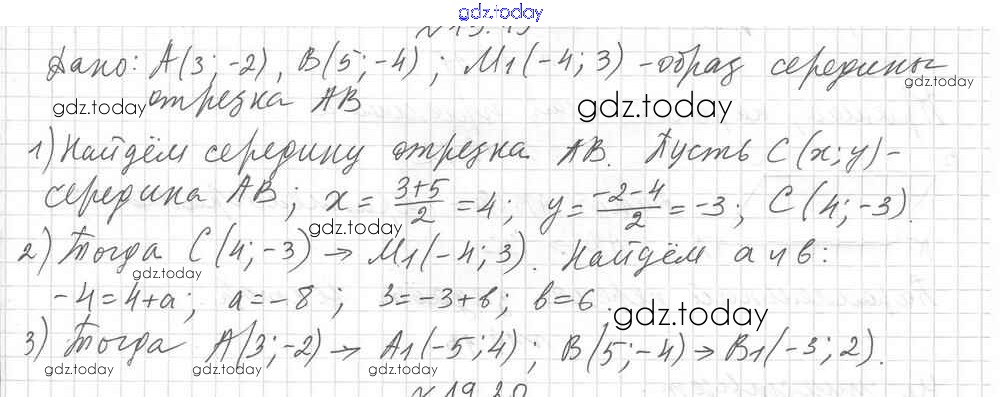 gdz.today
Дано: A(3; -2), B(5; -4); M1(-4; 3) - образ середины
gdz.today gdz.today gdz.today
отрезка AB
1) Найдём середину отрезка AB. Пусть C(x; y) -
середина AB; x = (3+5)/2 = 4; y = (-2-4)/2 = -3; C(4; -3).
gdz.today gdz.today
2) Тогда C(4; -3) → M1(-4; 3). Найдём a и b:
gdz.today
-4 = 4 + a; a = -8; 3 = -3 + b; b = 6
gdz.today
3) Тогда A(3; -2) → A1(-5; 4); B(5; -4) → B1(-3; 2).
gdz.today gdz.today gdz.today